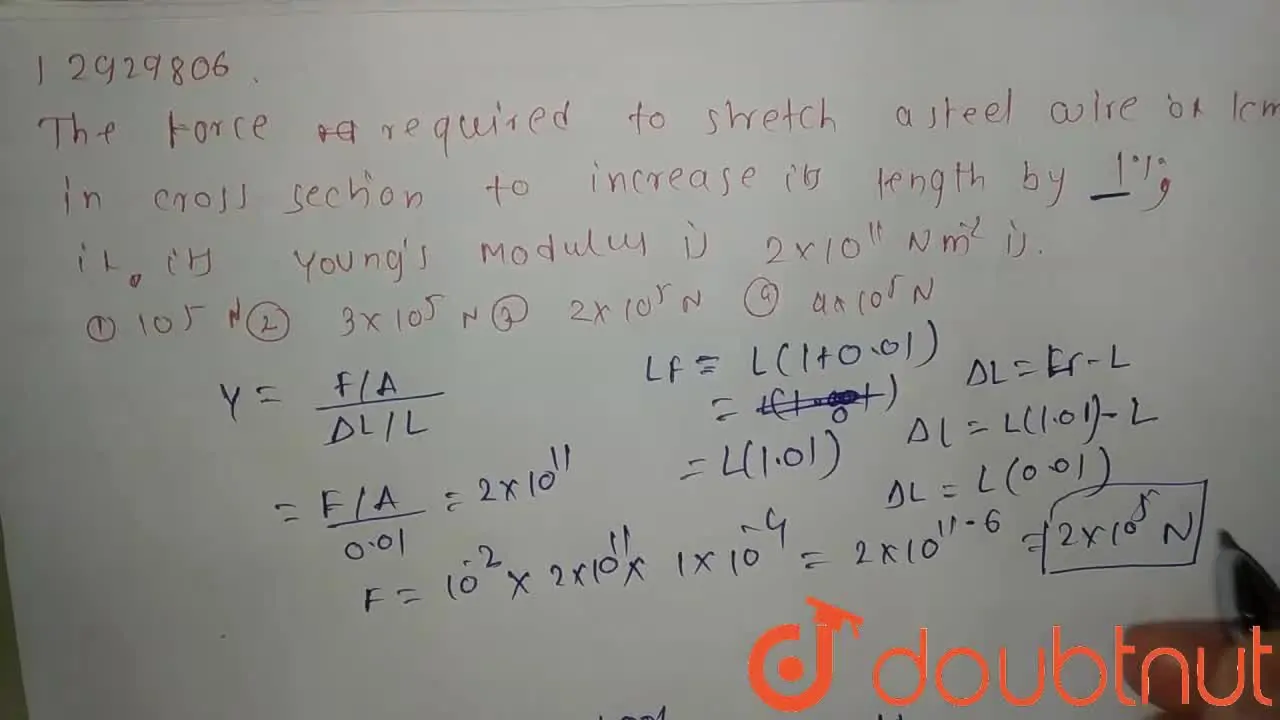 12929806.
The Force required to stretch a steel wire of 1cm
in cross section to increase its length by 1%,
if its Young's modulus is 2×10¹¹ Nm⁻² is.
① 10⁵ N ② 3×10⁵ N ③ 2×10⁵ N ④ 4×10⁵ N
Y = F/A / ΔL/L
= F/A / 0.01 = 2×10¹¹
F = 10⁻² × 2×10¹¹ × 1×10⁻⁴ = 2×10¹¹⁻⁶ = 2×10⁵ N
LF = L(1+0.01)
= L(1.01)
ΔL = LF-L
ΔL = L(1.01)-L
ΔL = L(0.01)
doubtnut